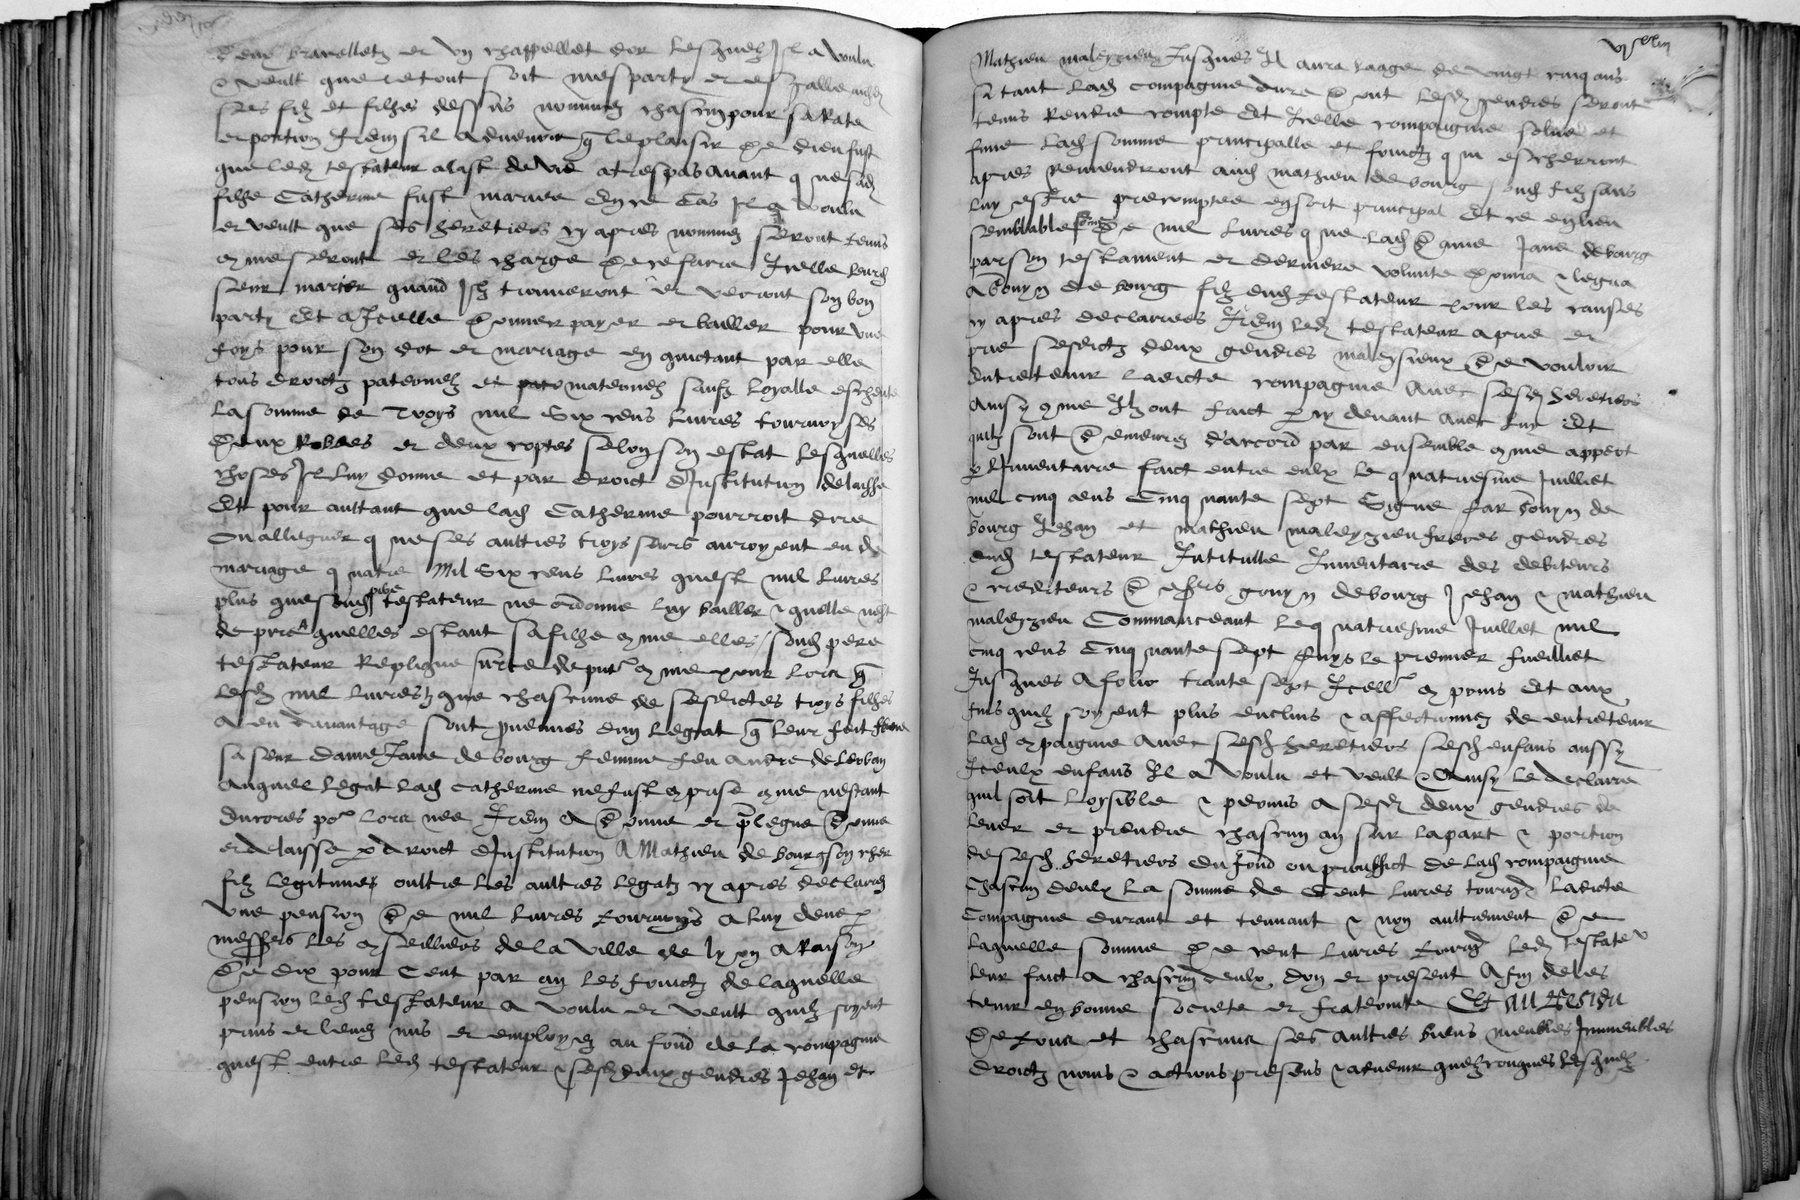 deux bracelletz et un chappellet dor lesquelz Il a voulu
& veult que le tout soit mesparty et esgallé
ses filz et filhes dessus nommez chascun pour sa Rate
et portion Item sil advenoit q le plaisir de dieu fust
que led testateur alast de vie a trespas avant q ne sad
filhe Catherine fust mariee en ce cas Il a voulu
et veult que ses heretiers cy apres nommez seront tenus
et les charge de ce faire Icelle leurd
seur marier quand Ilz trouveront et verront son bon
party Et a Icelle donner payer et bailler pour une
foys pour son dot et mariage en quictant par elle
tous droictz paternelz et maternelz saufz loyalle escheute
la somme de Troys mil Six cens livres tournoyses
deux Robbes et deux cottes selon son estat lesquelles
choses Il luy donne et par droict dInstitution delaisse
Et pour aultant que lad Catherine pourroit dire
ou alleguer q ne ses aultres troys seurs auroyent eu de
mariage quatre Mil Six cens livres quest mil livres
plus que sond pere testateur ne ordonne luy bailler & quelle nest
de pire quelles estant sa filhe comme elles / sond pere
testateur Replique sur ce
lesd mil livres que chascune de sesdictes troys filhes
a eu davantage sont provenues dun legat q leur feit feue
sa seur dame Jane de bourg femme feu Andre de Lerban
auquel legat lad Catherine ne fust comprise comme nestant
encores po lors nee Item A donné et prelegue donne
et delaisse p droict dInstitution A Mathieu de bourg son cher
filz legitime oultre les aultres legatz cy apres declarez
une pension de mil livres tournoys a luy deue p
messrs les conseilliers de la ville de lyon A Raison
de dix pour cent par an les fruictz de laquelle
pension led testateur a voulu et veult quilz soyent
prins et levez mis et employez au fond de la compagnie
quest entre led testateur & sesd deux gendres Jehan et
Mathieu maleyzieu Jusques Il aura laage de vingt cinq ans
si tant lad compagnie dure dont lesd gendres seront
tenus Rendre compte Et Icelle compagnie solue et
finie lad somme principalle et fruictz q en escherront
apres Reviendront aud mathieu de bourg sond filz sans
luy estre precomptee en soit principal Et ce en lieu
semblable somme de mil livres q ne lad dame Jane de bourg
par son testament et derniere volunte donna & legua
A bouyn de bourg filz dud testateur pour les causes
cy apres declairees Item led testateur a prie et
prie sesdictz deux gendres maleysieux de vouloir
entretenir ladicte compagnie avec sesd heretiers
Ainsy comme Ilz ont faict p cy devant avec luy Et
quilz sont demeurez daccord par ensemble comme appert
p lInventaire faict entre eulx le q natriesme Juilliet
mil cinq cens Cinq nante sept Signe par bouyn de
bourg Jehan et mathieu maleyzieu freres gendres
dud testateur Intitulle Inventaire des debiteurs
& crediteurs de srs gouyn de bourg Jehan & mathieu
maleyzieu Commanceant le q natriesme Juilliet mil
cinq cens Cinq nante sept Puys le premier fueilliet
Jusques A folio trante sept Icell comprins Et aux
fins quilz soyent plus enclins & affectionnez de entretenir
lad compaignie avec sesd heretiers sesd enfans aussy
Iceulx enfans Il a voulu et veult & Ainsy le declaire
quil soit loysible & permis a sesd deux gendres de
lever et prendre chascun an sur la part & portion
de sesd heretiers du fond ou prouffict de lad compaignie
Chascun deulx la somme de Cent livres tourn ladicte
Compaignie durant et tenant & non aultrement de
laquelle somme de cent livres tourn led testate
leur faict a chascun deulx don et present Afin de les
tenir en bonne societe et fraternite Et Au Residu
de tous et chascuns ses aultres biens meubles Immeubles
droictz noms & actions presens & advenir quelzconques lesquelz